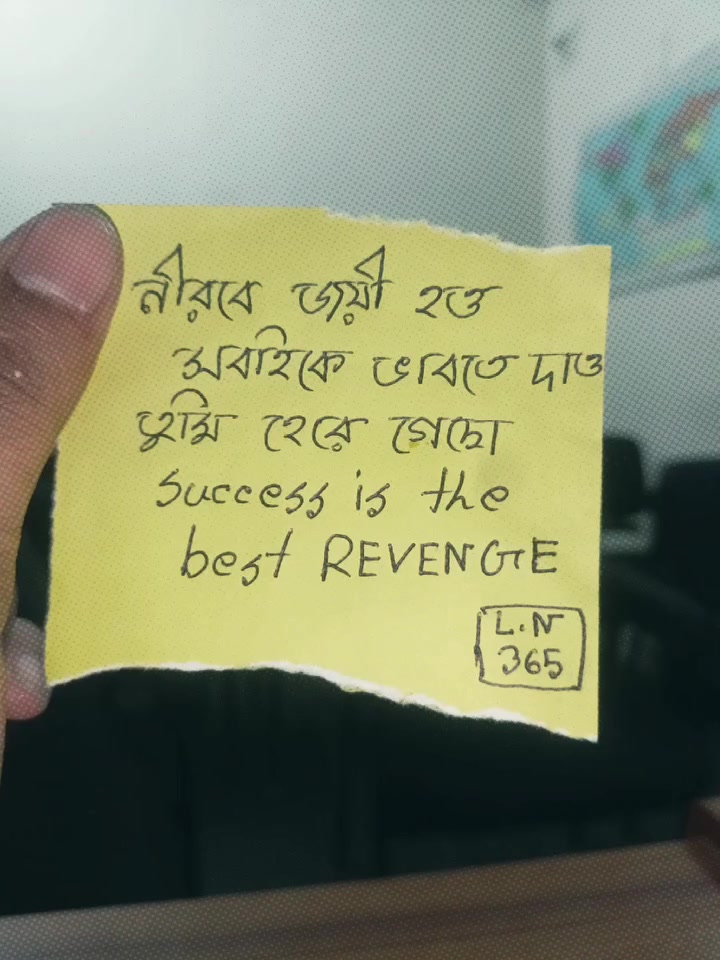 নীরবে জয়ী হও
সবাইকে ভাবতে দাও
তুমি হেরে গেছো
success is the
best REVENGE
L.N
365